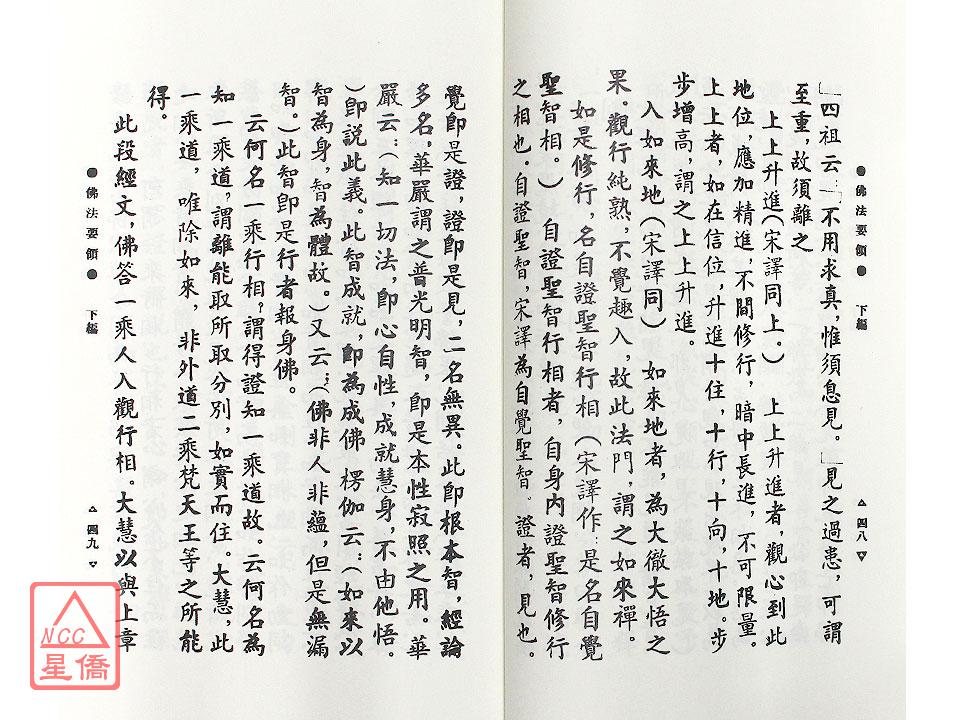 「四祖云:「不用求真，惟須息見。」見之過患，可謂
至重，故須離之
上上升進(宋譯同上。) 上上升進者，觀心到此
地位，應加精進，不間修行，暗中長進，不可限量。
上上者，如在信位，升進十住，十行，十向，十地。步
步增高，謂之上上升進。
入如來地(宋譯同) 如來地者，為大徹大悟之
果。觀行純熟，不覺趣入，故此法門，謂之如來禪。
如是修行，名自證聖智行相(宋譯作:是名自覺
聖智相。) 自證聖智行相者，自身內證聖智修行
之相也。自證聖智，宋譯為自覺聖智。證者，見也。
●佛法要領● 下編 △四八▽
覺卽是證，證卽是見，二名無異。此卽根本智，經論
多名，華嚴謂之普光明智，卽是本性寂照之用。華
嚴云:(知一切法，卽心自性，成就慧身，不由他悟。
)卽說此義。此智成就，卽為成佛 楞伽云:(如來以
智為身，智為體故。)又云:(佛非人非蘊，但是無漏
智。)此智卽是行者報身佛。
云何名一乘行相?謂得證知一乘道故。云何名為
知一乘道，謂離能取所取分別，如實而住。大慧，此
一乘道，唯除如來，非外道二乘梵天王等之所能
得。
此段經文，佛答一乘人入觀行相。大慧以與上章
●佛法要領● 下編 △四九▽
NCC
星僑